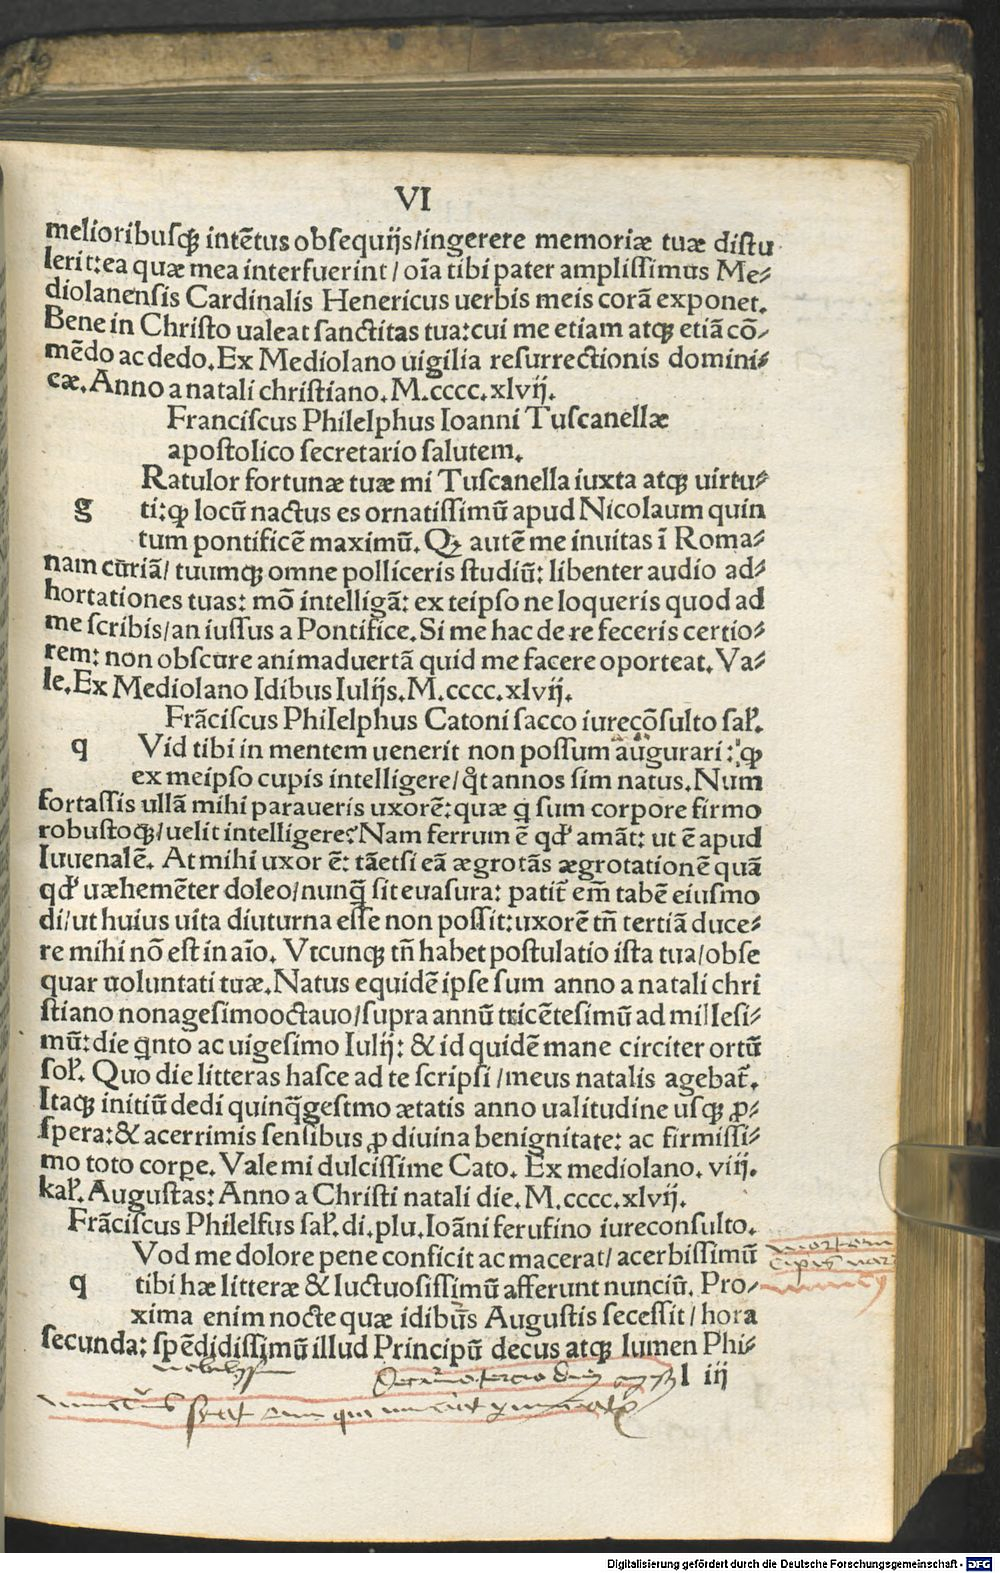 VI
melioribusqꝫ intētus obsequijs/ingerere memoriæ tuæ distu
lerit:ea quæ mea interfuerint / oīa tibi pater amplissimus Me⸗
diolanensis Cardinalis Henericus uerbis meis corā exponet.
Bene in Christo ualeat sanctitas tua:cui me etiam atqꝫ etiā cō⸗
mēdo ac dedo. Ex Mediolano uigilia resurrectionis domini⸗
cæ. Anno a natali christiano. M.cccc.xlvij.
Franciscus Philelphus Ioanni Tuscanellæ
apostolico secretario salutem.
Ratulor fortunæ tuæ mi Tuscanella iuxta atqꝫ uirtu⸗
g ti:ꝙ locū nactus es ornatissimū apud Nicolaum quin
tum pontificē maximū. Qꝫ autē me inuitas ī Roma⸗
nam curiā/ tuumqꝫ omne polliceris studiū: libenter audio ad⸗
hortationes tuas: mō intelligā: ex teipso ne loqueris quod ad
me scribis/an iussus a Pontifice. Si me hac de re feceris certio⸗
rem: non obscure animaduertā quid me facere oporteat. Va⸗
le. Ex Mediolano Idibus Iulijs. M.cccc.xlvij.
Frāciscus Philelphus Catoni sacco iurecōsulto saꝉ.
q Vid tibi in mentem uenerit non possum augurari: ꝙ
ex meipso cupis intelligere/ qͦt annos sim natus. Num
fortassis ullā mihi paraueris uxorē: quæ q̄ sum corpore firmo
robustoqꝫ/ uelit intelligere? Nam ferrum ē qđ amāt: ut ē apud
Iuuenalē. At mihi uxor ē: tāetsi eā ægrotās ægrotationē quā
qđ uæhemēter doleo/ nunq̄ sit euasura: patit̄ em̄ tabē eiusmo
di/ ut huius uita diuturna esse non possit: uxorē tn̄ tertiā duce⸗
re mihi nō est in aīo. Vtcunqꝫ tn̄ habet postulatio ista tua/ obse
quar uoluntati tuæ. Natus equidē ipse sum anno a natali chri
stiano nonagesimooctauo/ supra annū tricētesimū ad millesi⸗
mū: die q̇nto ac uigesimo Iulij: & id quidē mane circiter ortū
soꝉ. Quo die litteras hasce ad te scripsi / meus natalis agebat̄.
Itaqꝫ initiū dedi quinq̄gesimo ætatis anno ualitudine usqꝫ ꝓ⸗
spera: & acerrimis sensibus ꝓ diuina benignitate: ac firmissi⸗
mo toto corꝑe. Vale mi dulcissime Cato. Ex mediolano. viij.
kaꝉ. Augustas: Anno a Christi natali die. M.cccc.xlvij.
Frāciscus Philelfus saꝉ. di. plu. Ioāni ferufino iureconsulto.
Vod me dolore pene conficit ac macerat/ acerbissimū
q tibi hæ litteræ & luctuosissimū afferunt nunciū. Pro⸗
xima enim nocte quæ idibus Augustis secessit / hora
secunda: spēdidissimū illud Principū decus atqꝫ lumen Phi⸗
l iij
Digitalisierung gefördert durch die Deutsche Forschungsgemeinschaft - DFG